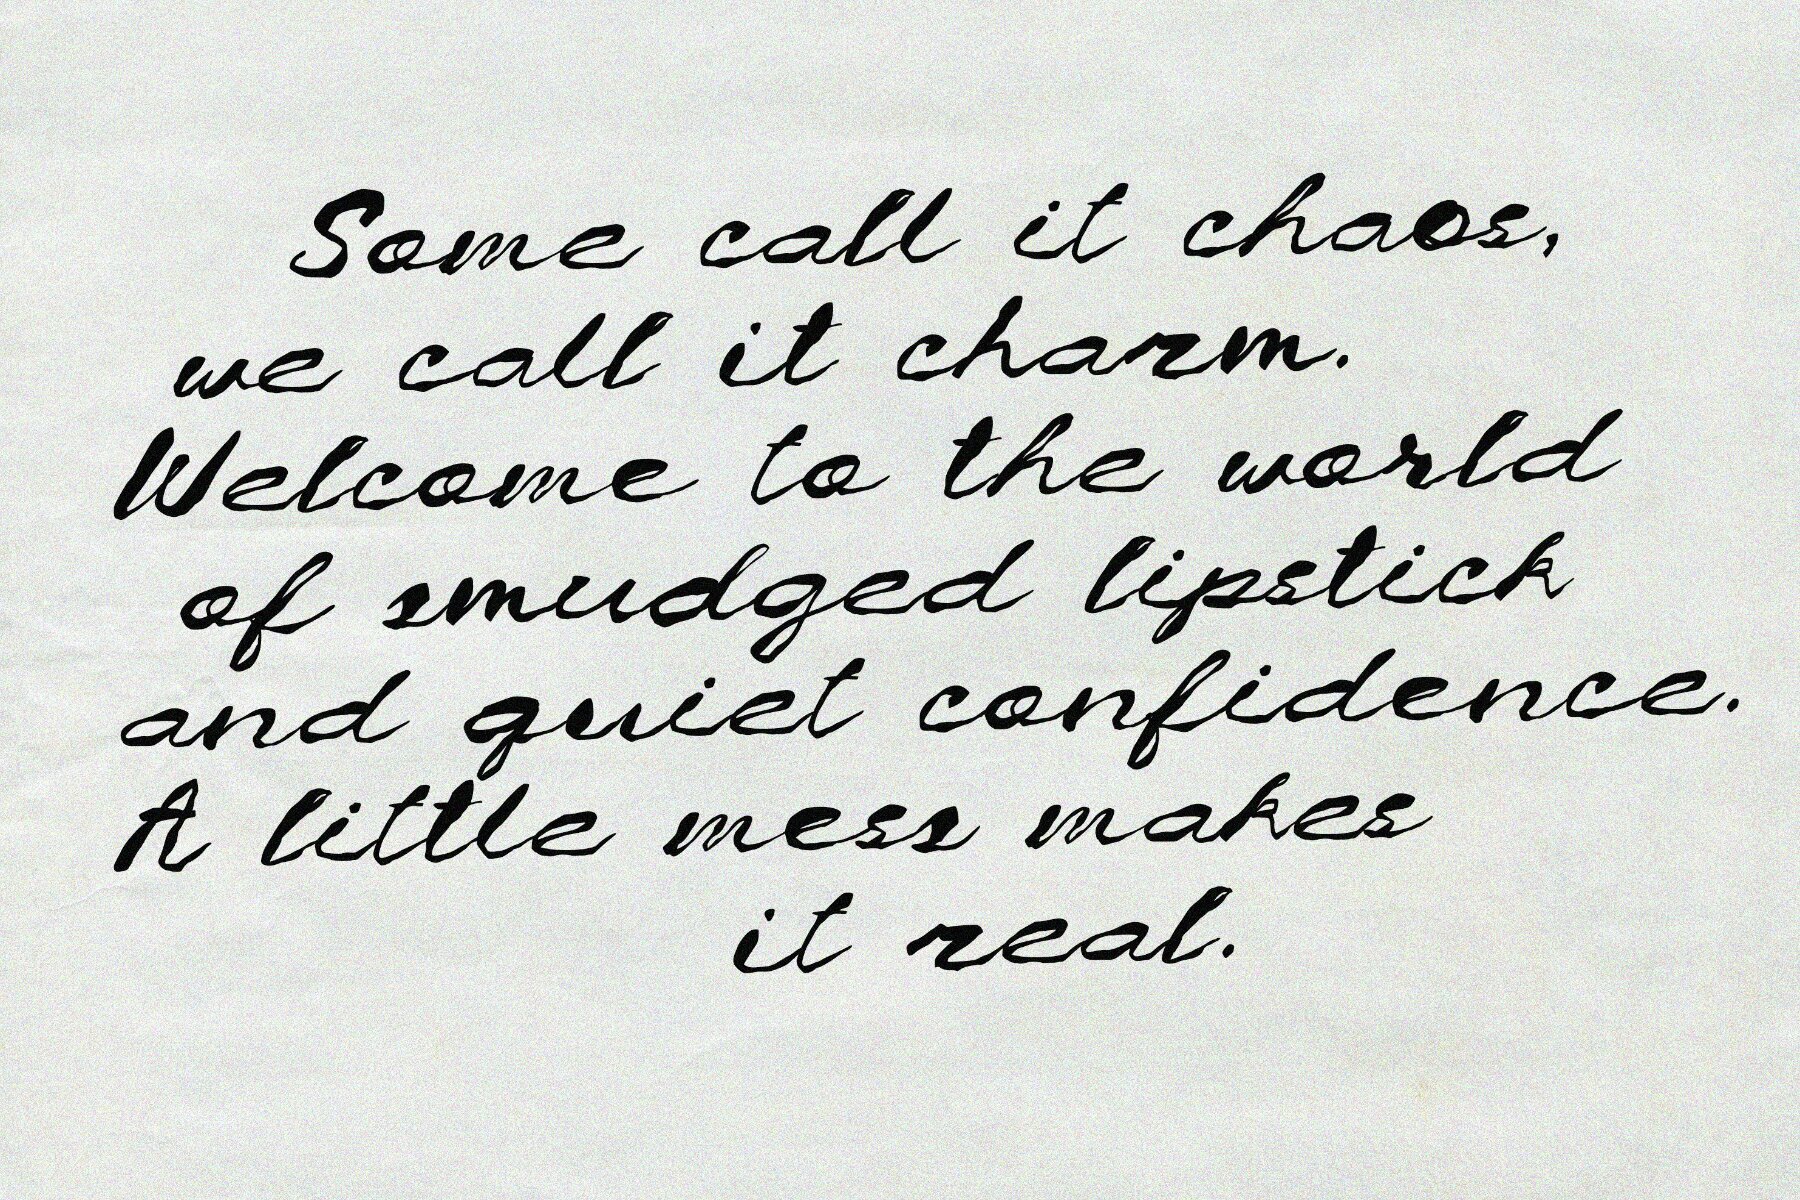 Some call it chaos,
we call it charm.
Welcome to the world
of smudged lipstick
and quiet confidence.
A little mess makes
it real.